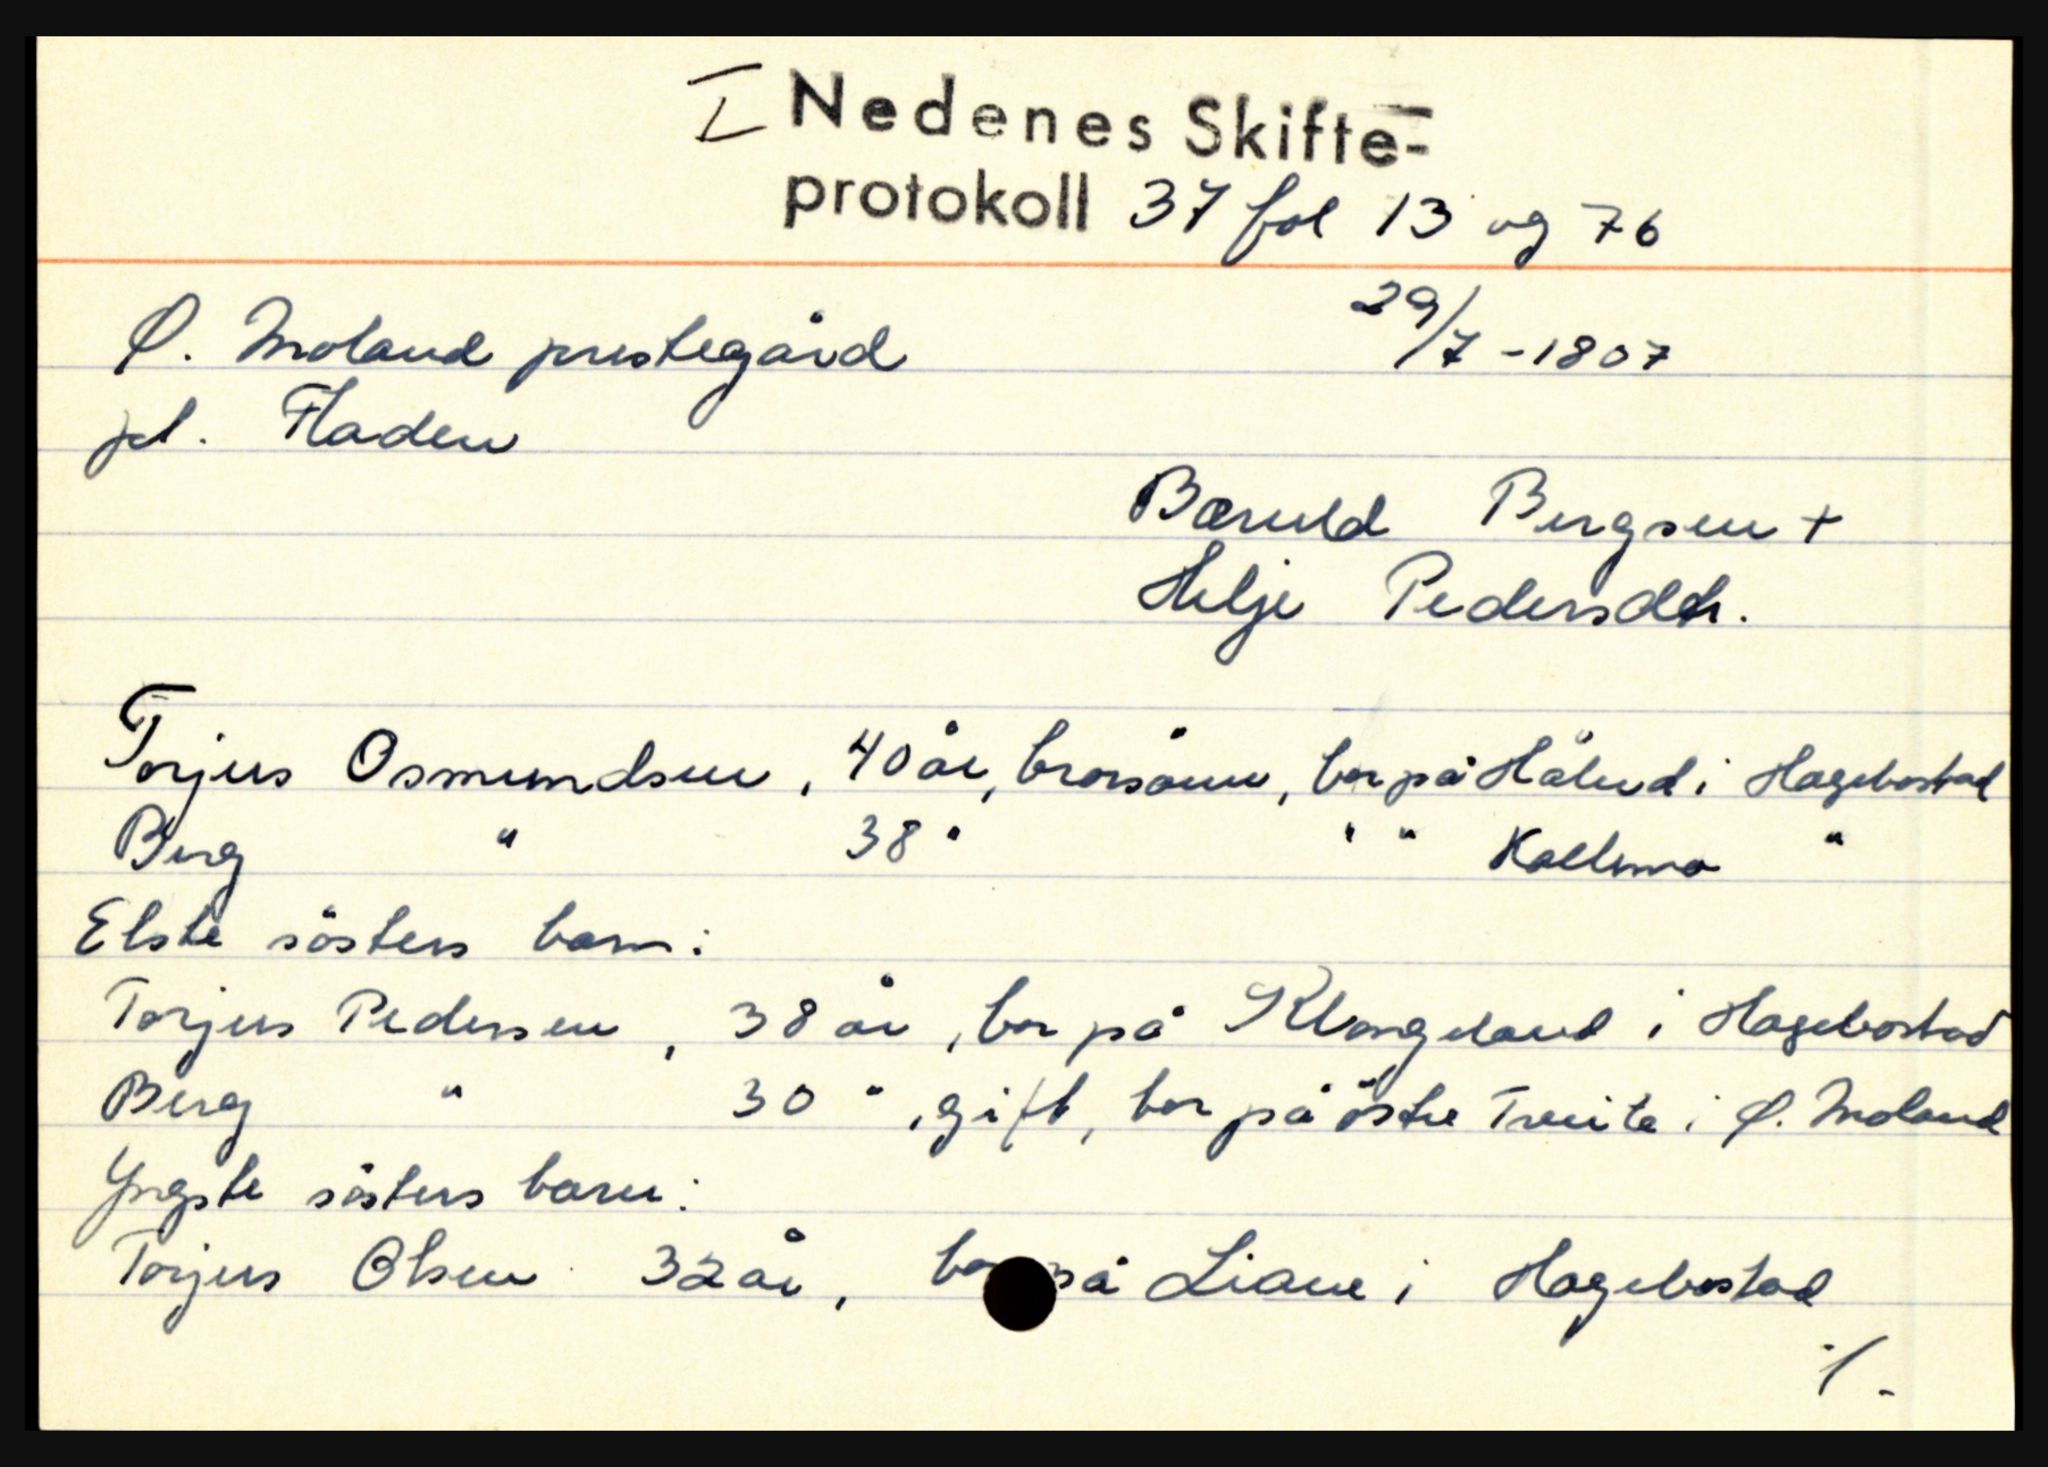 I Nedenes Skifte-
protokoll 37 fol 13 og 76
Ø. Moland prestegård 29/7 -1807
pl. Fladen
Bæruld Bergsen +
Helje Pedersdtr.
Torjus Osmundsen, 40 år, brorsønn, bor på Håland i Hægebostad
Berg " 38 " " " Kollemo "
Elste søsters barn:
Torjus Pedersen, 38 år, bor på Klungeland i Hægebostad
Berg " 30 ", gift, bor på østre Tveite i Ø. Moland
Yngste søsters barn:
Torjus Olsen 32 år, bor på Liane i Hægebostad
·/.